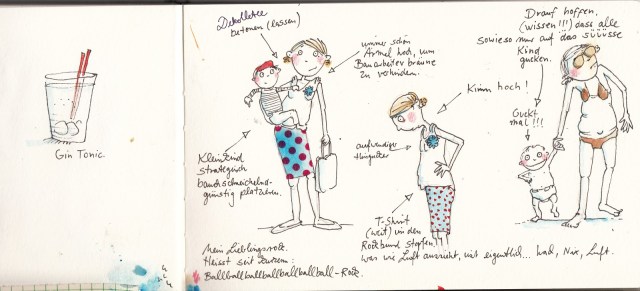 Gin Tonic.
Dekolletee
betonen (lassen)
immer schön
Ärmel hoch, um
Bauarbeiter bräune
zu verhindern.
Kleinkind
strategisch
günstig platzieren.
Mein Lieblingsrock.
Heisst seit kurzem:
Ballballballballballballball-Rock.
Kinn hoch!
aufwendiger
Hingucker
T-Shirt
(weit) in den
Rockbund stopfen,
was wie Luft aussieht, ist eigentlich... hach, Nix, Luft.
Drauf hoffen,
(wissen!!!) dass alle
sowieso nur auf das süüüsse
Kind
gucken.
Guckt
mal!!!